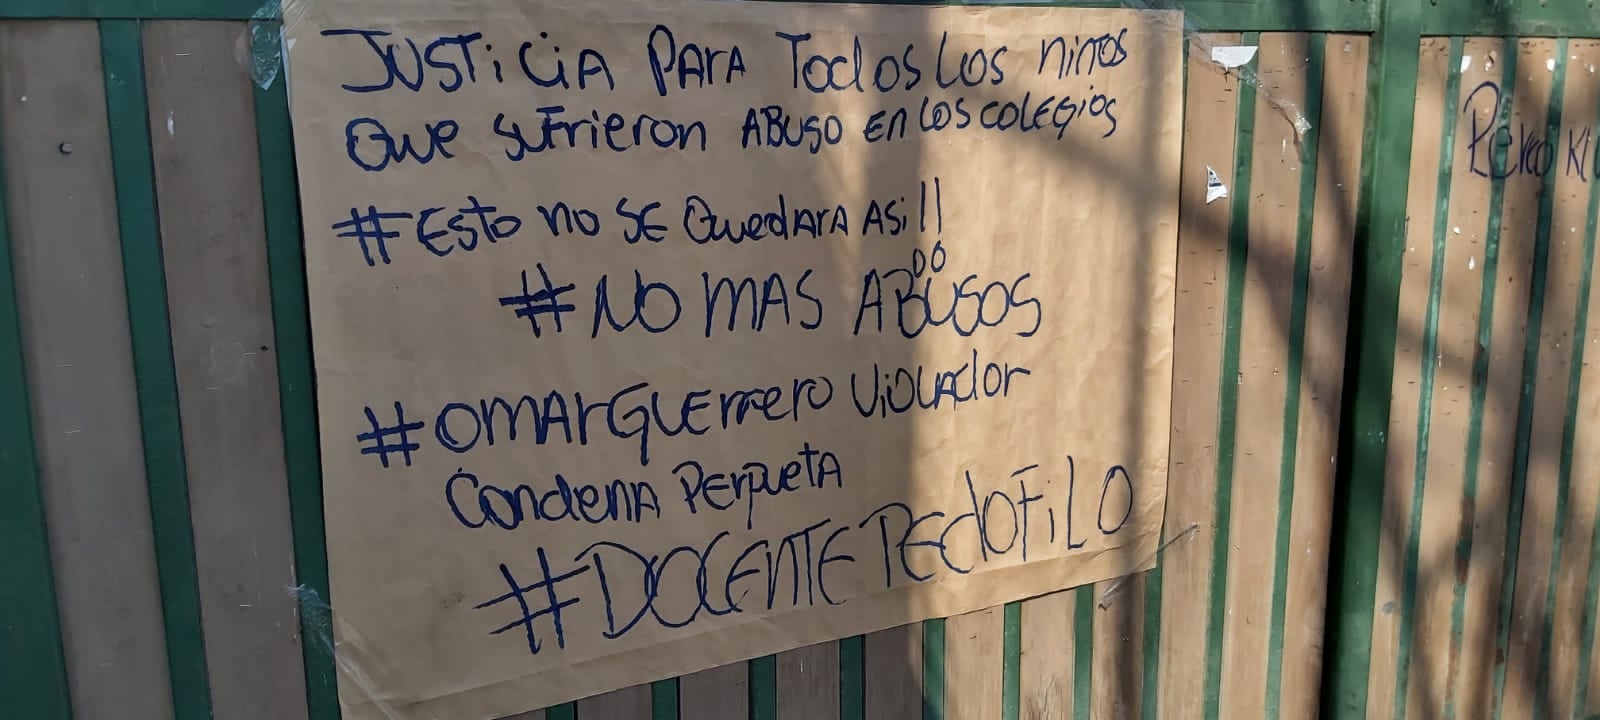 JUSTiCiA PARA Todos Los niños
Que suFrieron ABuso EN Los coLEgios
#Esto no SE QuedARA ASi!!
DO
#NO MAS ABUSOS
#OMArGUErrero ViOLAdor
CondenA PErpuetA
#DOCENTE PEdOFiLO